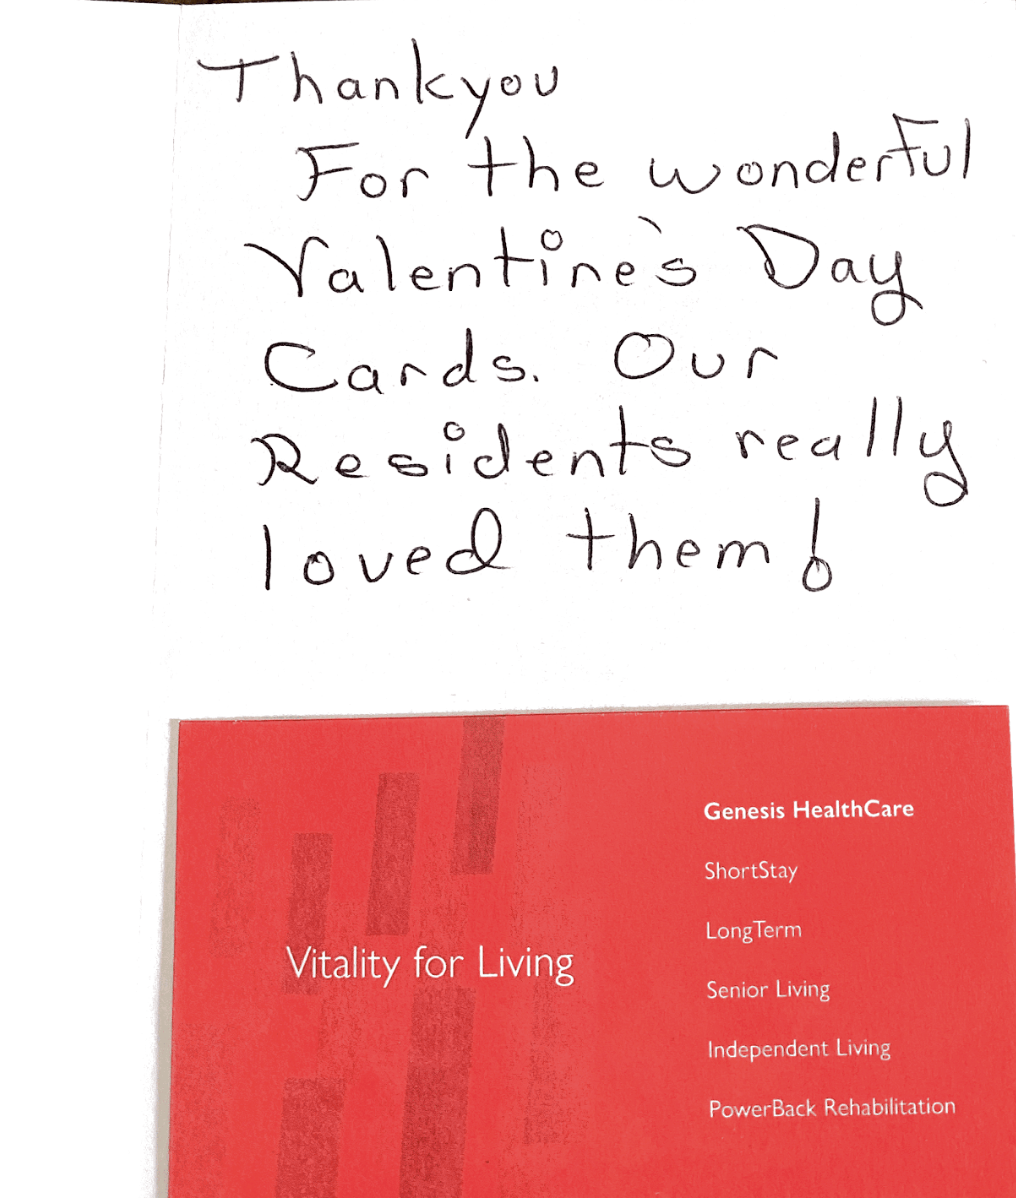 Thankyou
For the wonderful
Valentine's Day
Cards. Our
Residents really
loved them!
Vitality for Living
Genesis HealthCare
ShortStay
LongTerm
Senior Living
Independent Living
PowerBack Rehabilitation